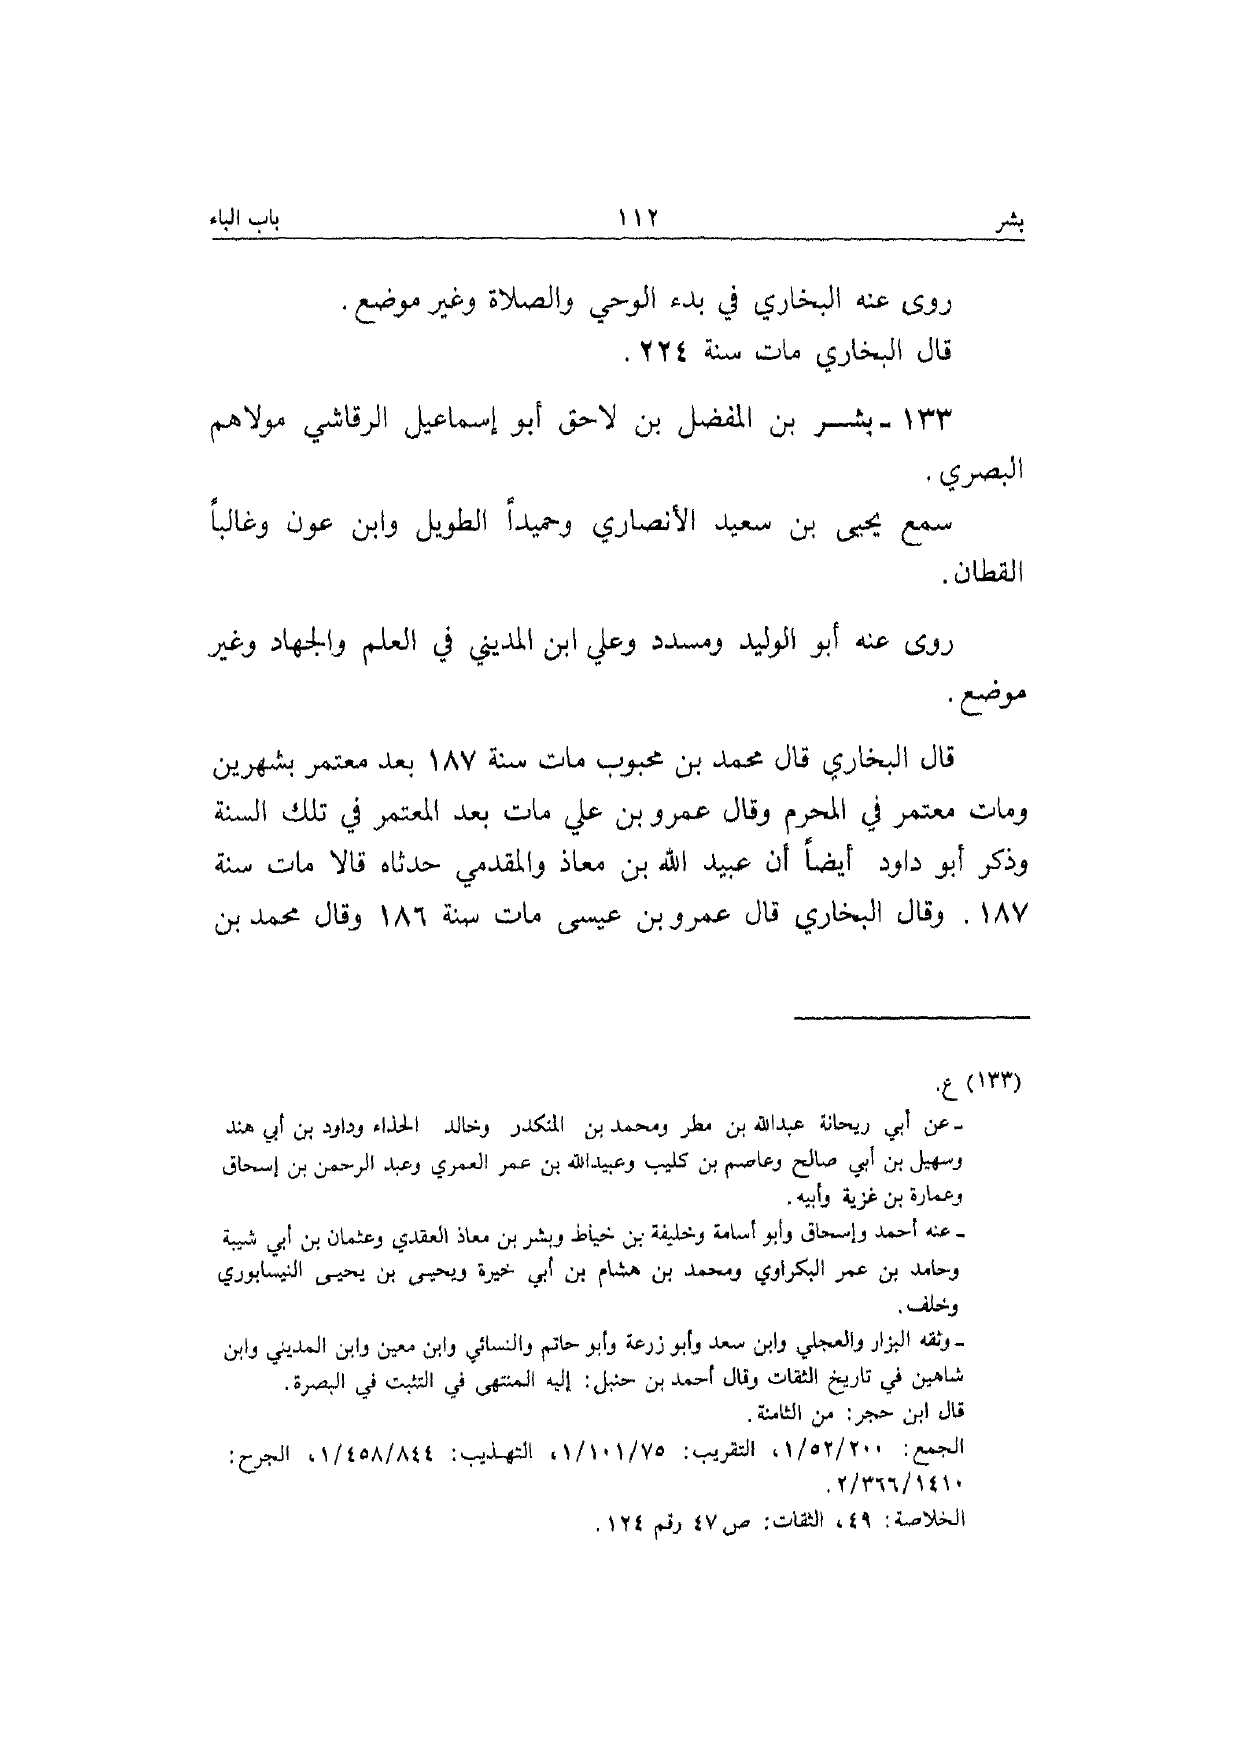 بشر ١١٢ باب الباء
روى عنه البخاري في بدء الوحي والصلاة وغير موضع .
قال البخاري مات سنة ٢٢٤ .
١٣٣ ـ بشـــر بن المفضل بن لاحق أبو إسماعيل الرقاشي مولاهم
البصري .
سمع يحيى بن سعيد الأنصاري وحميداً الطويل وابن عون وغالباً
القطان .
روى عنه أبو الوليد ومسدد وعلي ابن المديني في العلم والجهاد وغير
موضع .
قال البخاري قال محمد بن محبوب مات سنة ١٨٧ بعد معتمر بشهرين
ومات معتمر في المحرم وقال عمرو بن علي مات بعد المعتمر في تلك السنة
وذكر أبو داود أيضاً أن عبيد الله بن معاذ والمقدمي حدثاه قالا مات سنة
١٨٧ . وقال البخاري قال عمرو بن عيسى مات سنة ١٨٦ وقال محمد بن
(١٣٣) ع.
ـ عن أبي ريحانة عبدالله بن مطر ومحمد بن المنكدر وخالد الحذاء وداود بن أبي هند
وسهيل بن أبي صالح وعاصم بن كليب وعبيدالله بن عمر العمري وعبد الرحمن بن إسحاق
وعمارة بن غزية وأبيه .
ـ عنه أحمد وإسحاق وأبو أسامة وخليفة بن خياط وبشر بن معاذ العقدي وعثمان بن أبي شيبة
وحامد بن عمر البكراوي ومحمد بن هشام بن أبي خيرة ويحيى بن يحيى النيسابوري
وخلف .
ـ وثقه البزار والعجلي وابن سعد وأبو زرعة وأبو حاتم والنسائي وابن معين وابن المديني وابن
شاهين في تاريخ الثقات وقال أحمد بن حنبل : إليه المنتهى في التثبت في البصرة .
قال ابن حجر : من الثامنة .
الجمع : ١/٥٢/٢٠٠، التقريب : ١/١٠١/٧٥، التهذيب : ١/٤٥٨/٨٤٤، الجرح :
٢/٣٦٦/١٤١٠ .
الخلاصة : ٤٩، الثقات : ص ٤٧ رقم ١٢٤ .